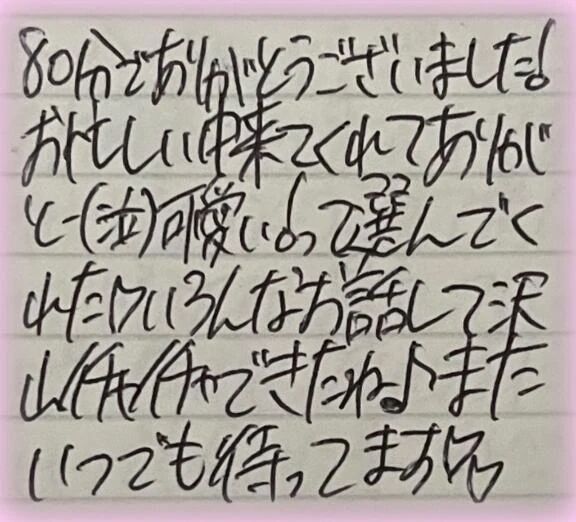 80分でありがとうございました!
お忙しい中来てくれてありが
と〜(泣)可愛い!って選んでく
れたりいろんなお話して沢
山イチャイチャできたね♪また
いつでも待ってます♡♡